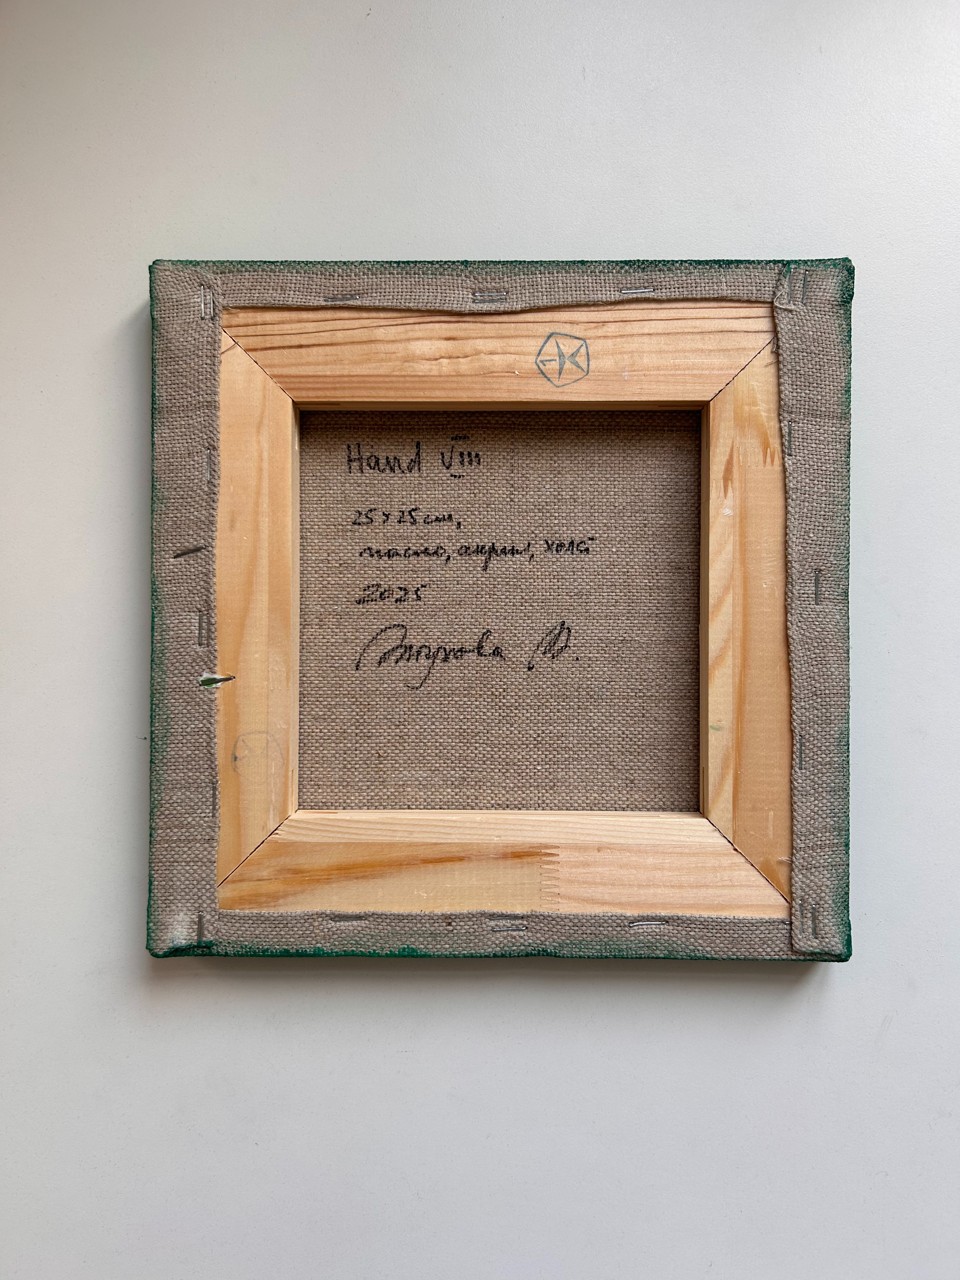 Hand VIII
25 x 25 см,
масло, акрил, холст
2025